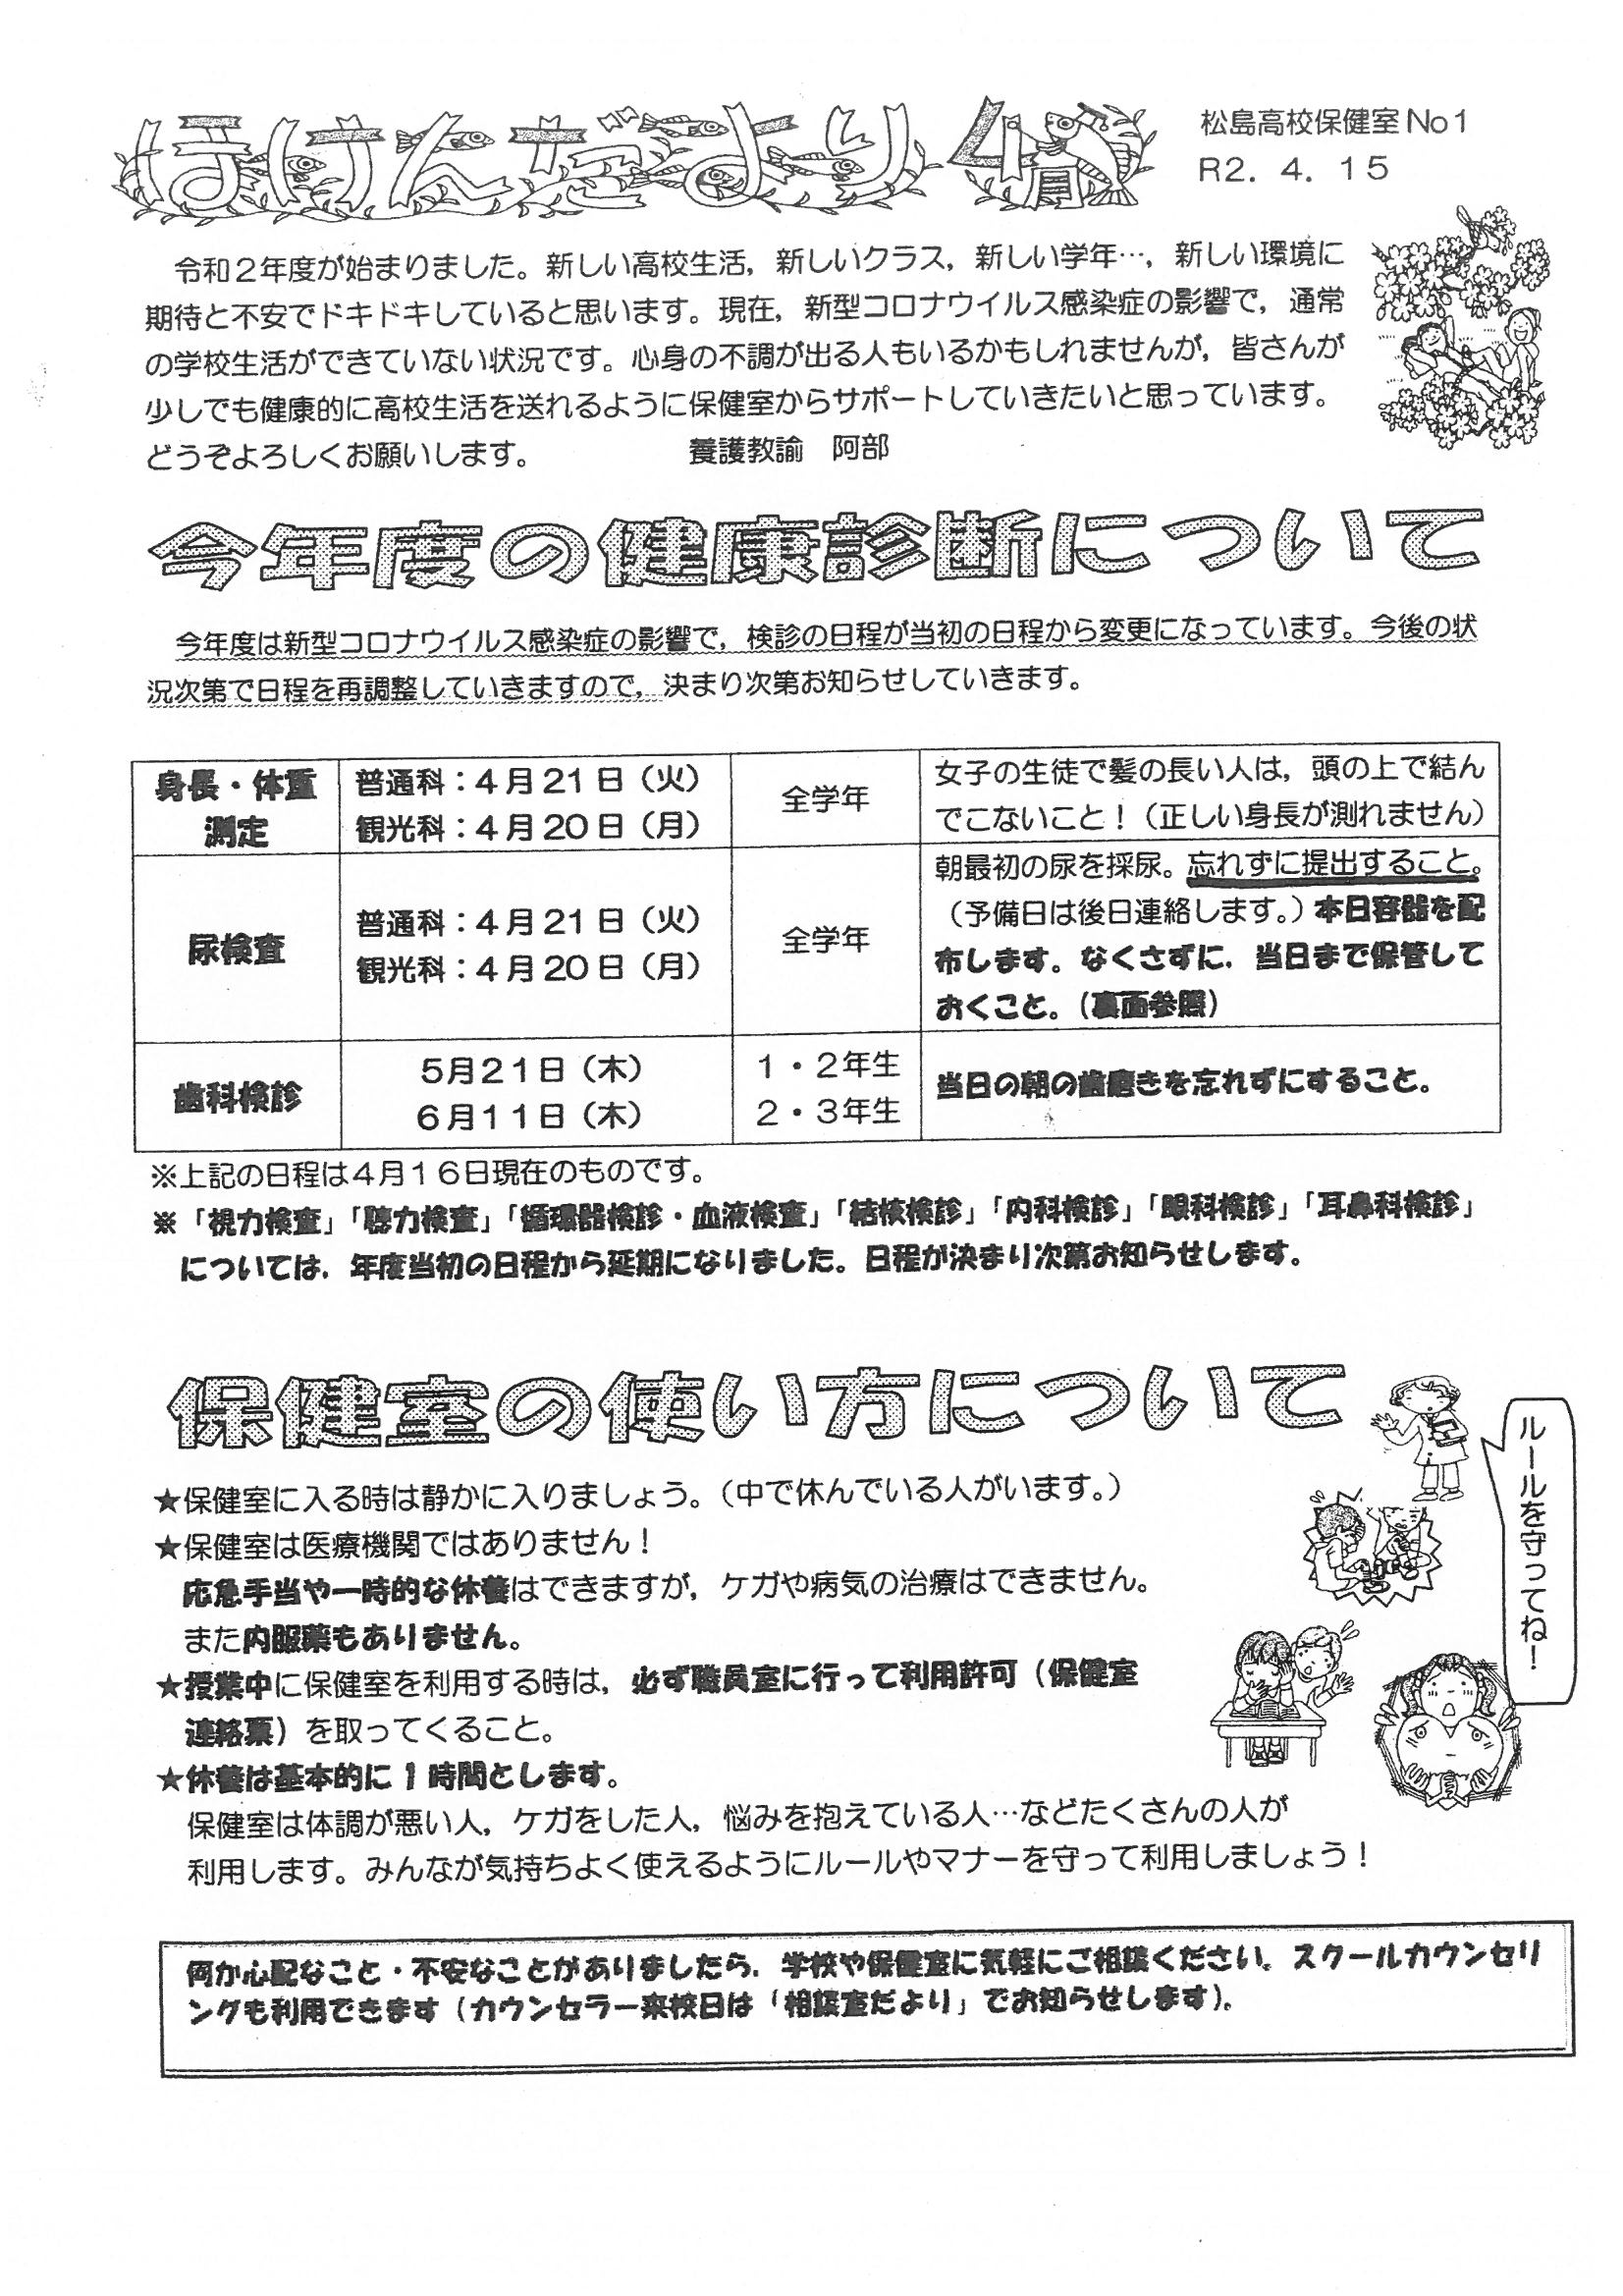 ほけんだより 4月
松島高校保健室No1
R2.4.15
令和2年度が始まりました。新しい高校生活,新しいクラス,新しい学年…,新しい環境に
期待と不安でドキドキしていると思います。現在,新型コロナウイルス感染症の影響で,通常
の学校生活ができていない状況です。心身の不調が出る人もいるかもしれませんが,皆さんが
少しでも健康的に高校生活を送れるように保健室からサポートしていきたいと思っています。
どうぞよろしくお願いします。 養護教諭 阿部
今年度の健康診断について
今年度は新型コロナウイルス感染症の影響で,検診の日程が当初の日程から変更になっています。今後の状
況次第で日程を再調整していきますので,決まり次第お知らせしていきます。
身長・体重
測定
普通科:4月21日(火)
観光科:4月20日(月)
全学年
女子の生徒で髪の長い人は,頭の上で結ん
でこないこと!(正しい身長が測れません)
尿検査
普通科:4月21日(火)
観光科:4月20日(月)
全学年
朝最初の尿を採尿。忘れずに提出すること。
(予備日は後日連絡します。)本日容器を配
布します。なくさずに,当日まで保管して
おくこと。(裏面参照)
歯科検診
5月21日(木)
6月11日(木)
1・2年生
2・3年生
当日の朝の歯磨きを忘れずにすること。
※上記の日程は4月16日現在のものです。
※「視力検査」「聴力検査」「循環器検診・血液検査」「結核検診」「内科検診」「眼科検診」「耳鼻科検診」
については,年度当初の日程から延期になりました。日程が決まり次第お知らせします。
保健室の使い方について
★保健室に入る時は静かに入りましょう。(中で休んでいる人がいます。)
★保健室は医療機関ではありません!
応急手当や一時的な休養はできますが,ケガや病気の治療はできません。
また内服薬もありません。
★授業中に保健室を利用する時は,必ず職員室に行って利用許可(保健室
連絡票)を取ってくること。
★休養は基本的に1時間とします。
保健室は体調が悪い人,ケガをした人,悩みを抱えている人…などたくさんの人が
利用します。みんなが気持ちよく使えるようにルールやマナーを守って利用しましょう!
ルールを守ってね!
何か心配なこと・不安なことがありましたら,学校や保健室に気軽にご相談ください。スクールカウンセリ
ングも利用できます(カウンセラー来校日は「相談室だより」でお知らせします)。